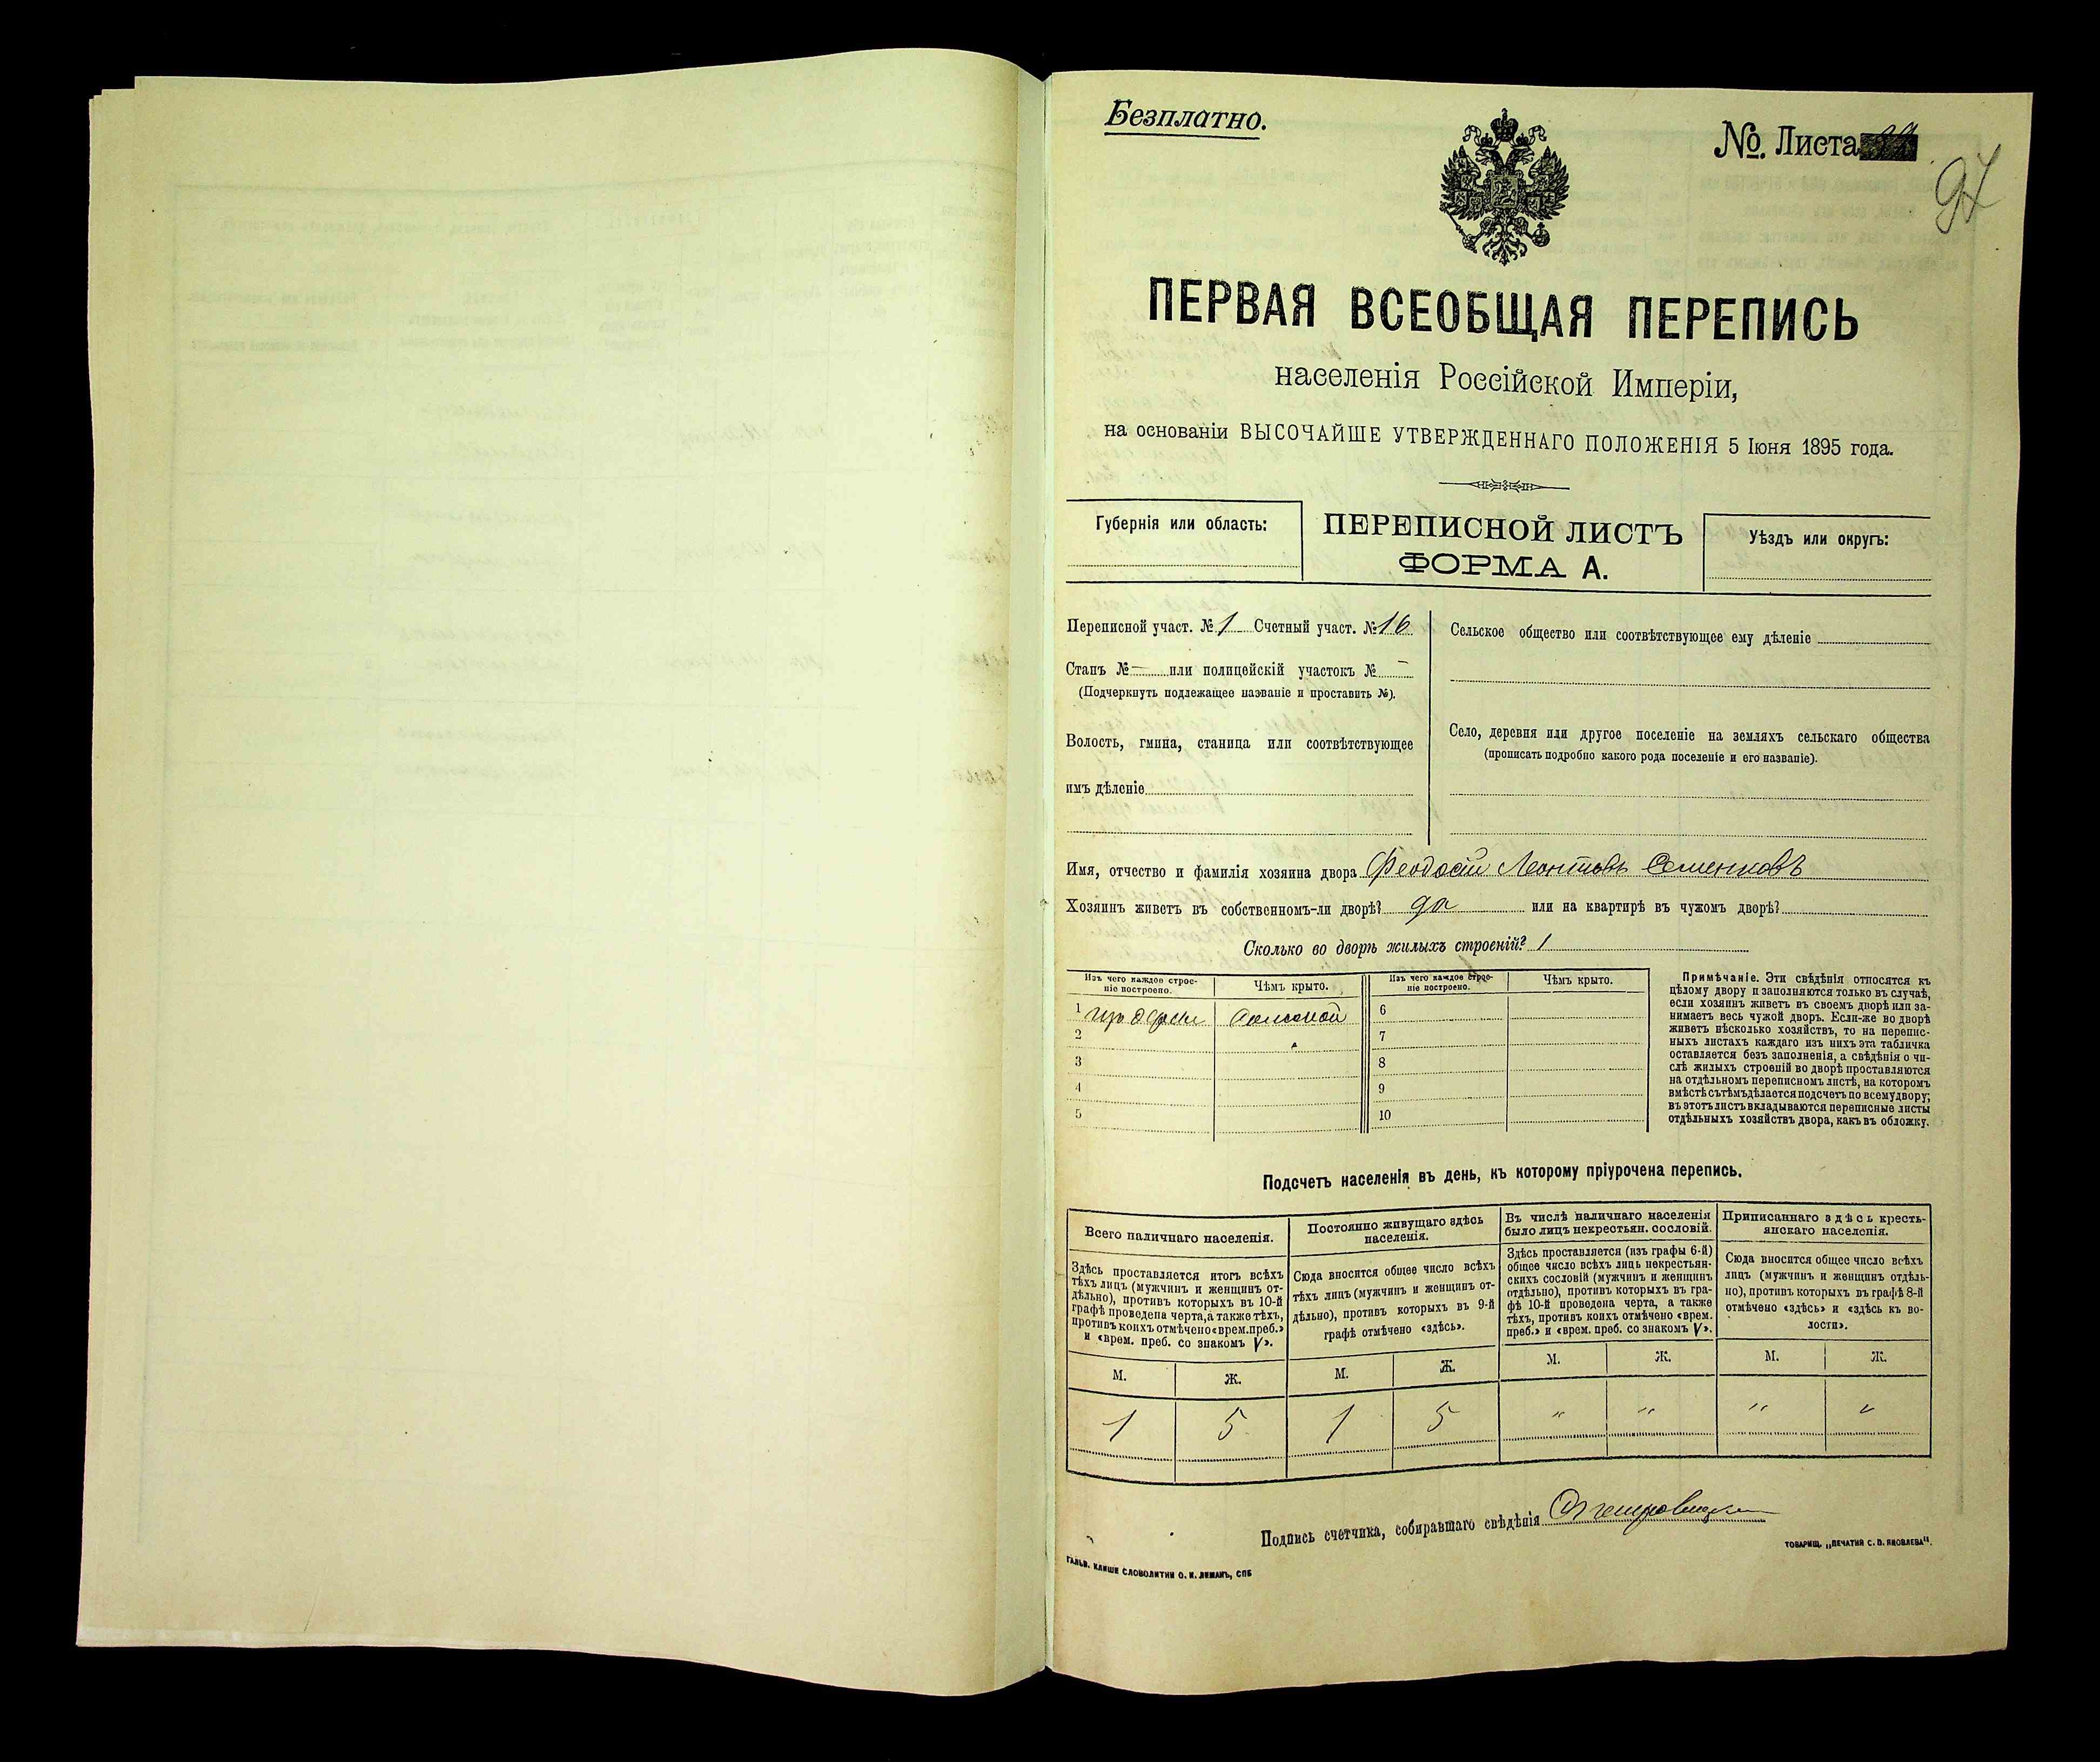 Безплатно.
№. Листа
97
ПЕРВАЯ ВСЕОБЩАЯ ПЕРЕПИСЬ
населенія Россійской Имперіи,
на основаніи ВЫСОЧАЙШЕ УТВЕРЖДЕННАГО ПОЛОЖЕНІЯ 5 Іюня 1895 года.
Губернія или область:
ПЕРЕПИСНОЙ ЛИСТЪ
ФОРМА А.
Уѣздъ или округъ:
Переписной участ. № 1 Счетный участ. № 16
Станъ № — или полицейскій участокъ № —
(Подчеркнуть подлежащее названіе и проставить №).
Волость, гмина, станица или соотвѣтствующее
имъ дѣленіе
Сельское общество или соотвѣтствующее ему дѣленіе
Село, деревня или другое поселеніе на земляхъ сельскаго общества
(прописать подробно какого рода поселеніе и его названіе).
Имя, отчество и фамилія хозяина двора Феодосій Леонтьевъ Семенковъ
Хозяинъ живетъ въ собственномъ-ли дворѣ? да или на квартирѣ въ чужомъ дворѣ?
Сколько во дворѣ жилыхъ строеній? 1
Изъ чего каждое строе-
ніе построено.
Чѣмъ крыто.
Изъ чего каждое строе-
ніе построено.
Чѣмъ крыто.
1 изъ дерева Соломой
2
3
4
5
6
7
8
9
10
Примѣчаніе. Эти свѣдѣнія относятся къ
цѣлому двору и заполняются только въ случаѣ,
если хозяинъ живетъ въ своемъ дворѣ или за-
нимаетъ весь чужой дворъ. Если-же во дворѣ
живетъ нѣсколько хозяйствъ, то на перепис-
ныхъ листахъ каждаго изъ нихъ эта табличка
оставляется безъ заполненія, а свѣдѣнія о чи-
слѣ жилыхъ строеній во дворѣ проставляются
на отдѣльномъ переписномъ листѣ, на которомъ
вмѣстѣ съ тѣмъ дѣлается подсчетъ по всему двору;
въ этотъ листъ вкладываются переписные листы
отдѣльныхъ хозяйствъ двора, какъ въ обложку.
Подсчетъ населенія въ день, къ которому пріурочена перепись.
Всего наличнаго населенія.
Здѣсь проставляется итогъ всѣхъ
тѣхъ лицъ (мужчинъ и женщинъ от-
дѣльно), противъ которыхъ въ 10-й
графѣ проведена черта, а также тѣхъ,
противъ коихъ отмѣчено «врем. преб.»
и «врем. преб. со знакомъ V».
Постоянно живущаго здѣсь
населенія.
Сюда вносится общее число всѣхъ
тѣхъ лицъ (мужчинъ и женщинъ от-
дѣльно), противъ которыхъ въ 9-й
графѣ отмѣчено «здѣсь».
Въ числѣ наличнаго населенія
было лицъ некрестьян. сословій.
Здѣсь проставляется (изъ графы 6-й)
общее число всѣхъ лицъ некрестьян-
скихъ сословій (мужчинъ и женщинъ
отдѣльно), противъ которыхъ въ гра-
фѣ 10-й проведена черта, а также
тѣхъ, противъ коихъ отмѣчено «врем.
преб.» и «врем. преб. со знакомъ V».
Приписаннаго здѣсь кресть-
янскаго населенія.
Сюда вносится общее число всѣхъ
лицъ (мужчинъ и женщинъ отдѣль-
но), противъ которыхъ въ графѣ 8-й
отмѣчено «здѣсь» и «здѣсь къ во-
лости».
М. Ж. М. Ж. М. Ж. М. Ж.
1 5 1 5 " " " "
Подпись счетчика, собиравшаго свѣдѣнія
ГАЛЬВ. КЛИШЕ СЛОВОЛИТНИ О. И. ЛЕМАНЪ, СПБ
ТОВАРИЩ. „ПЕЧАТНЯ С. П. ЯКОВЛЕВА".